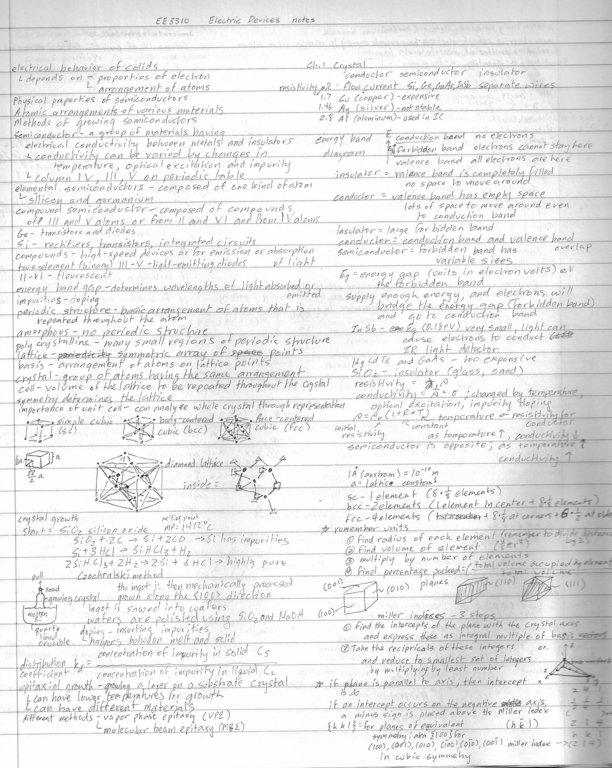 EE3310 Electric Devices notes
electrical behavior of solids
depends on - properties of electron
arrangement of atoms
Physical properties of semiconductors
Atomic arrangements of various materials
Methods of growing semiconductors
Semiconductor - a group of materials having
electrical conductivity between metals and insulators
conductivity can be varied by changes in
temperature, optical excitation and impurity
column IV, III, V on periodic table
elemental semiconductors - composed of one kind of atom
silicon and germanium
compound semiconductor - composed of compounds
of III and V atoms or from II and VI and from IV atoms
Ge - transistors and diodes
Si - rectifiers, transistors, integrated circuits
compounds - high-speed devices or for emission or absorption
of light
two element (binary) III-V - light-emitting diodes
II-VI - flourescent
energy band gap - determines wavelengths of light absorbed or
emitted
impurities - doping
periodic structure - basic arrangement of atoms that is
repeated throughout the atom
amorphous - no periodic structure
poly crystalline - many small regions of periodic structure
lattice - symmetric array of points
basis - arrangement of atoms on lattice points
crystal - group of atoms having the same arrangement
cell - volume of the lattice to be repeated throughout the crystal
symmetry determines the lattice
importance of unit cell - can analyze whole crystal through representation
simple cubic (sc)
body-centered cubic (bcc)
face-centered cubic (fcc)
diamond lattice
inside =
crystal growth
start = SiO2 silicon oxide
melting point
mp: 1412°C
SiO2 + 2C → Si + 2CO → Si has impurities
Si + 3HCl → SiHCl3 + H2
2SiHCl3 + 2H2 → 2Si + 6HCl → highly pure
Czochralski method
pull
seed
growing crystal
molten Si
quartz lined crucible
the ingot is then mechanically processed
grown along the <100> direction
ingot is sawed into wafers
wafers are polished using SiO2 and NaOH
doping - inserting impurities
happens between melt and solid
distribution coefficient kd =
concentration of impurity in solid Cs
concentration of impurity in liquid CL
epitaxial growth - growing a layer on a substrate crystal
can have lower temperatures for growth
can have different materials
different methods - vapor phase epitaxy (VPE)
molecular beam epitaxy (MBE)
Ch. 1 Crystal
conductor semiconductor insulator
flow current Si, Ge, GaAs, InSb separate wires
1.7 Cu (copper) - expensive
Ag (silver) - not stable
2.8 Al (aluminum) - used in IC
energy band diagram
E conduction band no electrons
forbidden band electrons cannot stay here
valence band all electrons are here
insulator = valence band is completely filled
no space to move around
conductor = valence band has empty space
lots of space to move around even
to conduction band
Insulator = large forbidden band
conductor = conduction band and valence band
overlap
semiconductor = forbidden band has
variable sizes
Eg = energy gap (units in electron volts) eV
the forbidden band
supply enough energy, and electrons will
bridge the energy gap (forbidden band)
and go to conduction band
InSb - (0.18eV) very small, light can
cause electrons to conduct
IR light detector
HgCdTe and GaAs - too expensive
SiO2 = insulator (glass, sand)
resistivity = ρ
conductivity = σ; changed by temperature,
optical excitation, impurity doping
temperature & resistivity for
conductor
initial resistivity
constant
as temperature ↑, conductivity ↓
semiconductor is opposite, as temperature ↑
conductivity ↑
1Å (anstrom) = 10⁻¹⁰m
a = lattice constant
sc - 1 element (8·⅛ elements)
bcc - 2 elements (1 element in center + 8·⅛ elements)
fcc - 4 elements (8·⅛ at corners + 6·½ at
* remember units
① find radius of each element (remember to divide distance by 2)
② find volume of element
③ multiply by number of elements
④ find percentage packed = (total volume occupied by element
(001) planes (110) (111)
(010)
(100)
miller indices - 3 steps
① find the intercepts of the plane with the crystal axes
and express these as integral multiple of basis vectors
② Take the reciprocals of these integers
and reduce to smallest set of integers
by multiplying by least number
ex.
* if plane is parallel to axis, then intercept
is ∞
if an intercept occurs on the negative axis,
a minus sign is placed above the Miller index
{hkl} = for planes of equivalent
symmetry, aka {100} for
(100), (001), (010), (1̄00), (01̄0), (001̄)
in cubic symmetry
(hkl)
h k l
miller index → (2 1 4)